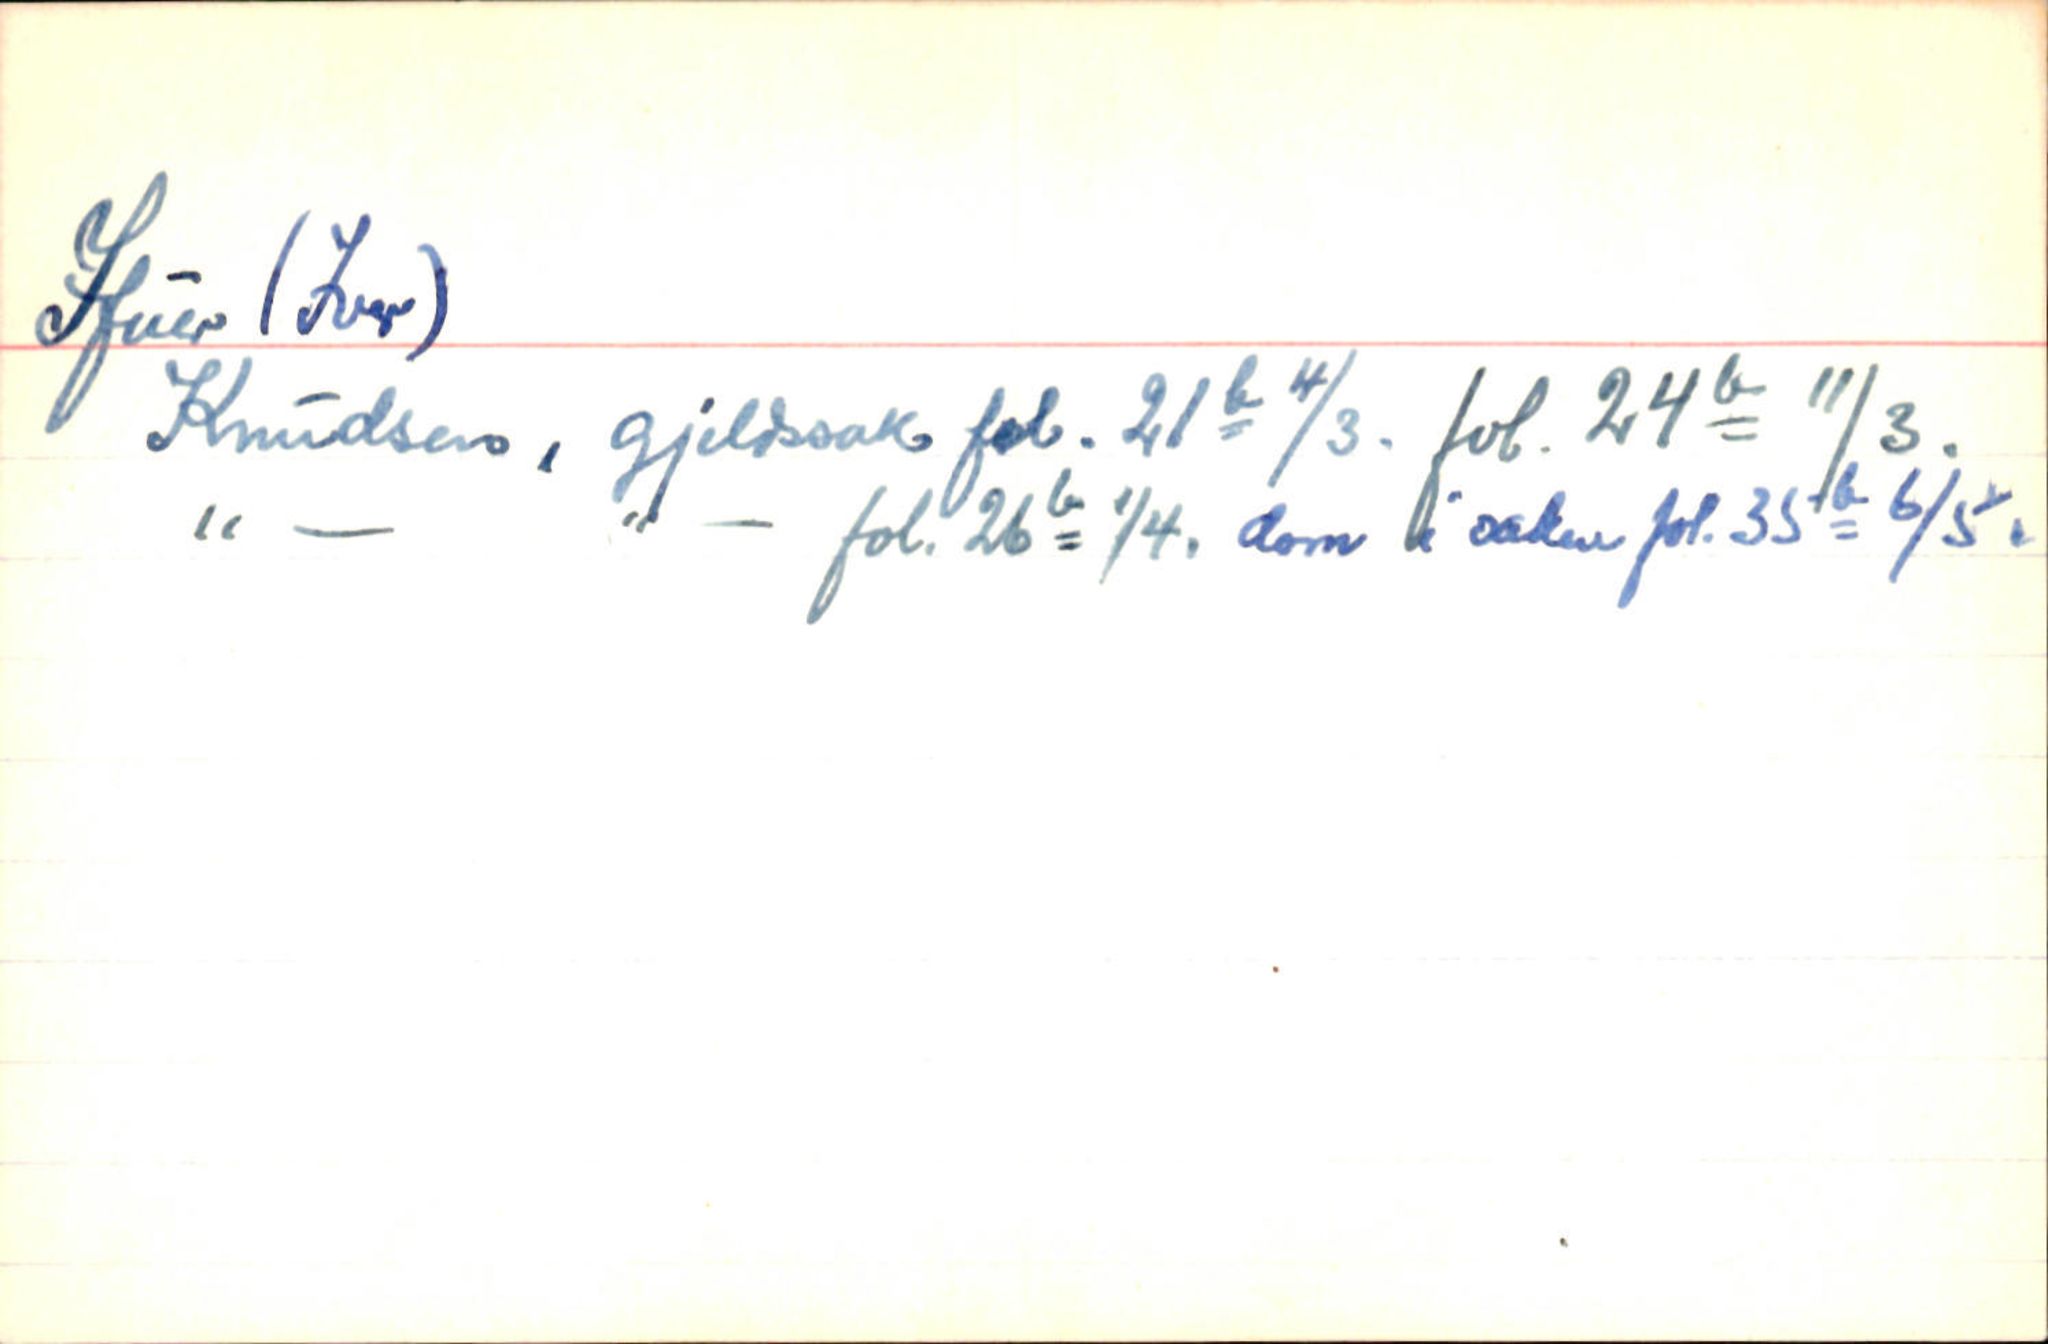 Ifuer (Iver)
Knudsen, gjeldssak fol. 21b 4/3. fol. 24b 11/3.
" — " — fol. 26b 1/4. dom i saken fol. 35b 6/5.